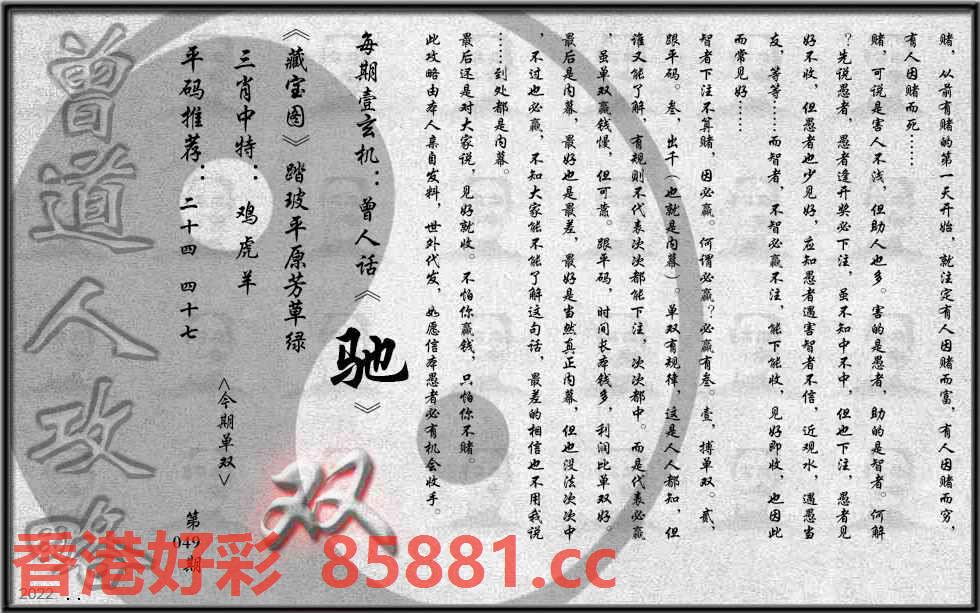 赌，从前有赌的第一天开始，就注定有人因赌而富，有人因赌而穷，
有人因赌而死……
赌，可说是害人不浅，但助人也多。害的是愚者，助的是智者。何解
？先说愚者，愚者逢开奖必下注，虽不知中不中，但也下注，愚者见
好不收，但愚者也少见好，应知愚者遇害智者不信，近观水，遇愚当
友，等等……而智者，不智必赢不注，能下能收，见好即收，也因此
而常见好……
智者下注不算赌，因必赢。何谓必赢？必赢有叁。壹，搏单双。贰，
跟平码。叁，出千（也就是内幕）。单双有规律，这是人人都知，但
谁又能了解，有规则不代表次次都能下注，次次都中。而是代表必赢
，虽单双赢钱慢，但可靠。跟平码，时间长本钱多，利润比单双好。
最后是内幕，最好也是最差，最好是当然真正内幕，但也没法次次中
，不过也必赢，不知大家能不能了解这句话，最差的相信也不用我说
……到处都是内幕。
最后还是对大家说，见好就收。不怕你赢钱，只怕你不赌。
此攻略由本人亲自发料，世外代发，如愿信本愚者必有机会收手。
每期壹玄机：曾人话《驰》
《藏宝图》踏玻平原芳草绿
三肖中特：鸡虎羊
<今期单双>
双
平码推荐：二十四 四十七
第049期
曾道人攻略
香港好彩 85881.cc
2022